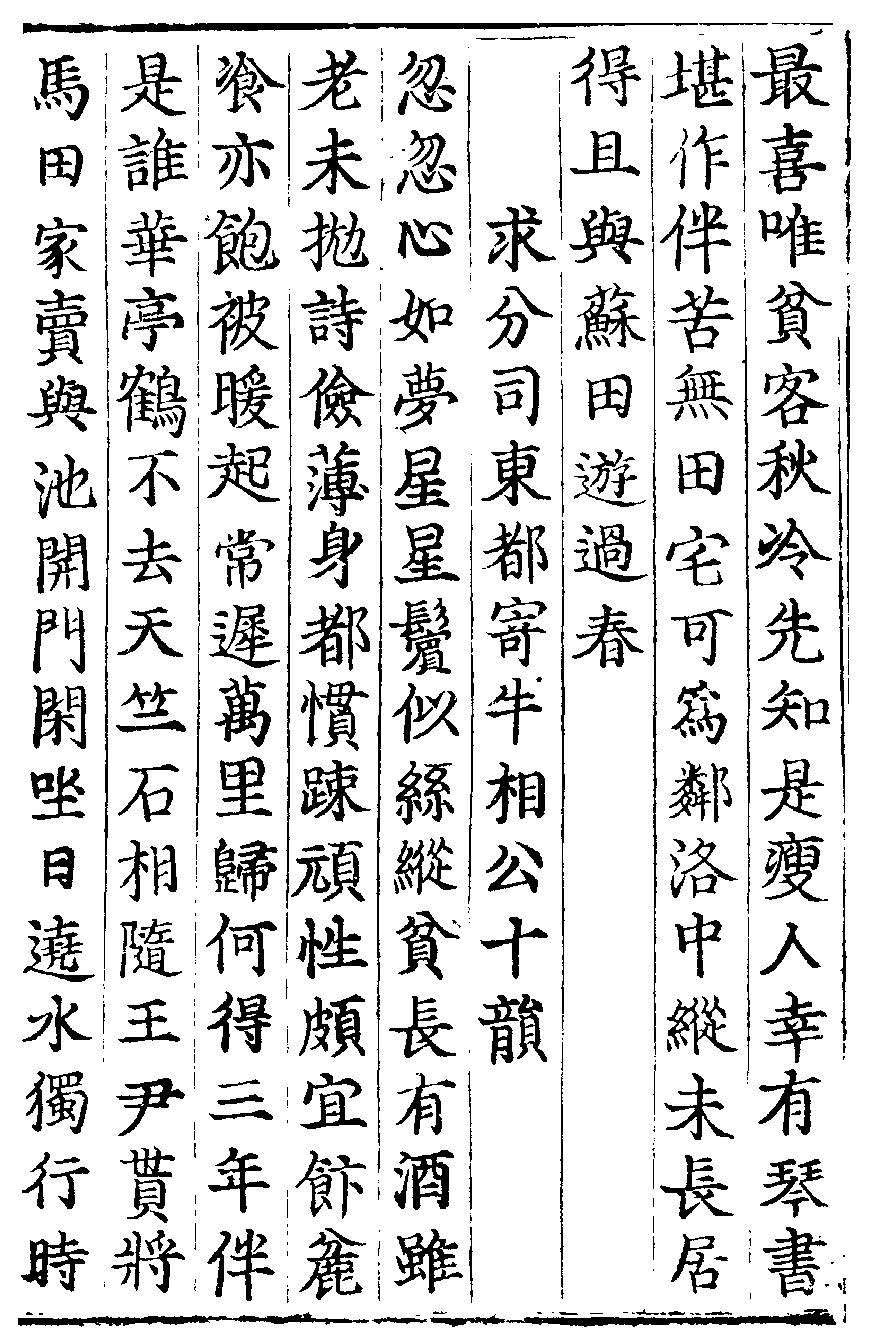 最喜唯貧客秋冷先知是瘦人幸有琴書
堪作伴苦無田宅可爲鄰洛中縱未長居
得且與蘇田遊過春
求分司東都寄牛相公十韻
忽忽心如夢星星鬢似絲縱貧長有酒雖
老未抛詩儉薄身都慣踈頑性頗宜飰麄
飡亦飽被暖起常遲萬里歸何得三年伴
是誰華亭鶴不去天竺石相隨王尹貰將
馬田家賣與池開門閑坐日遶水獨行時